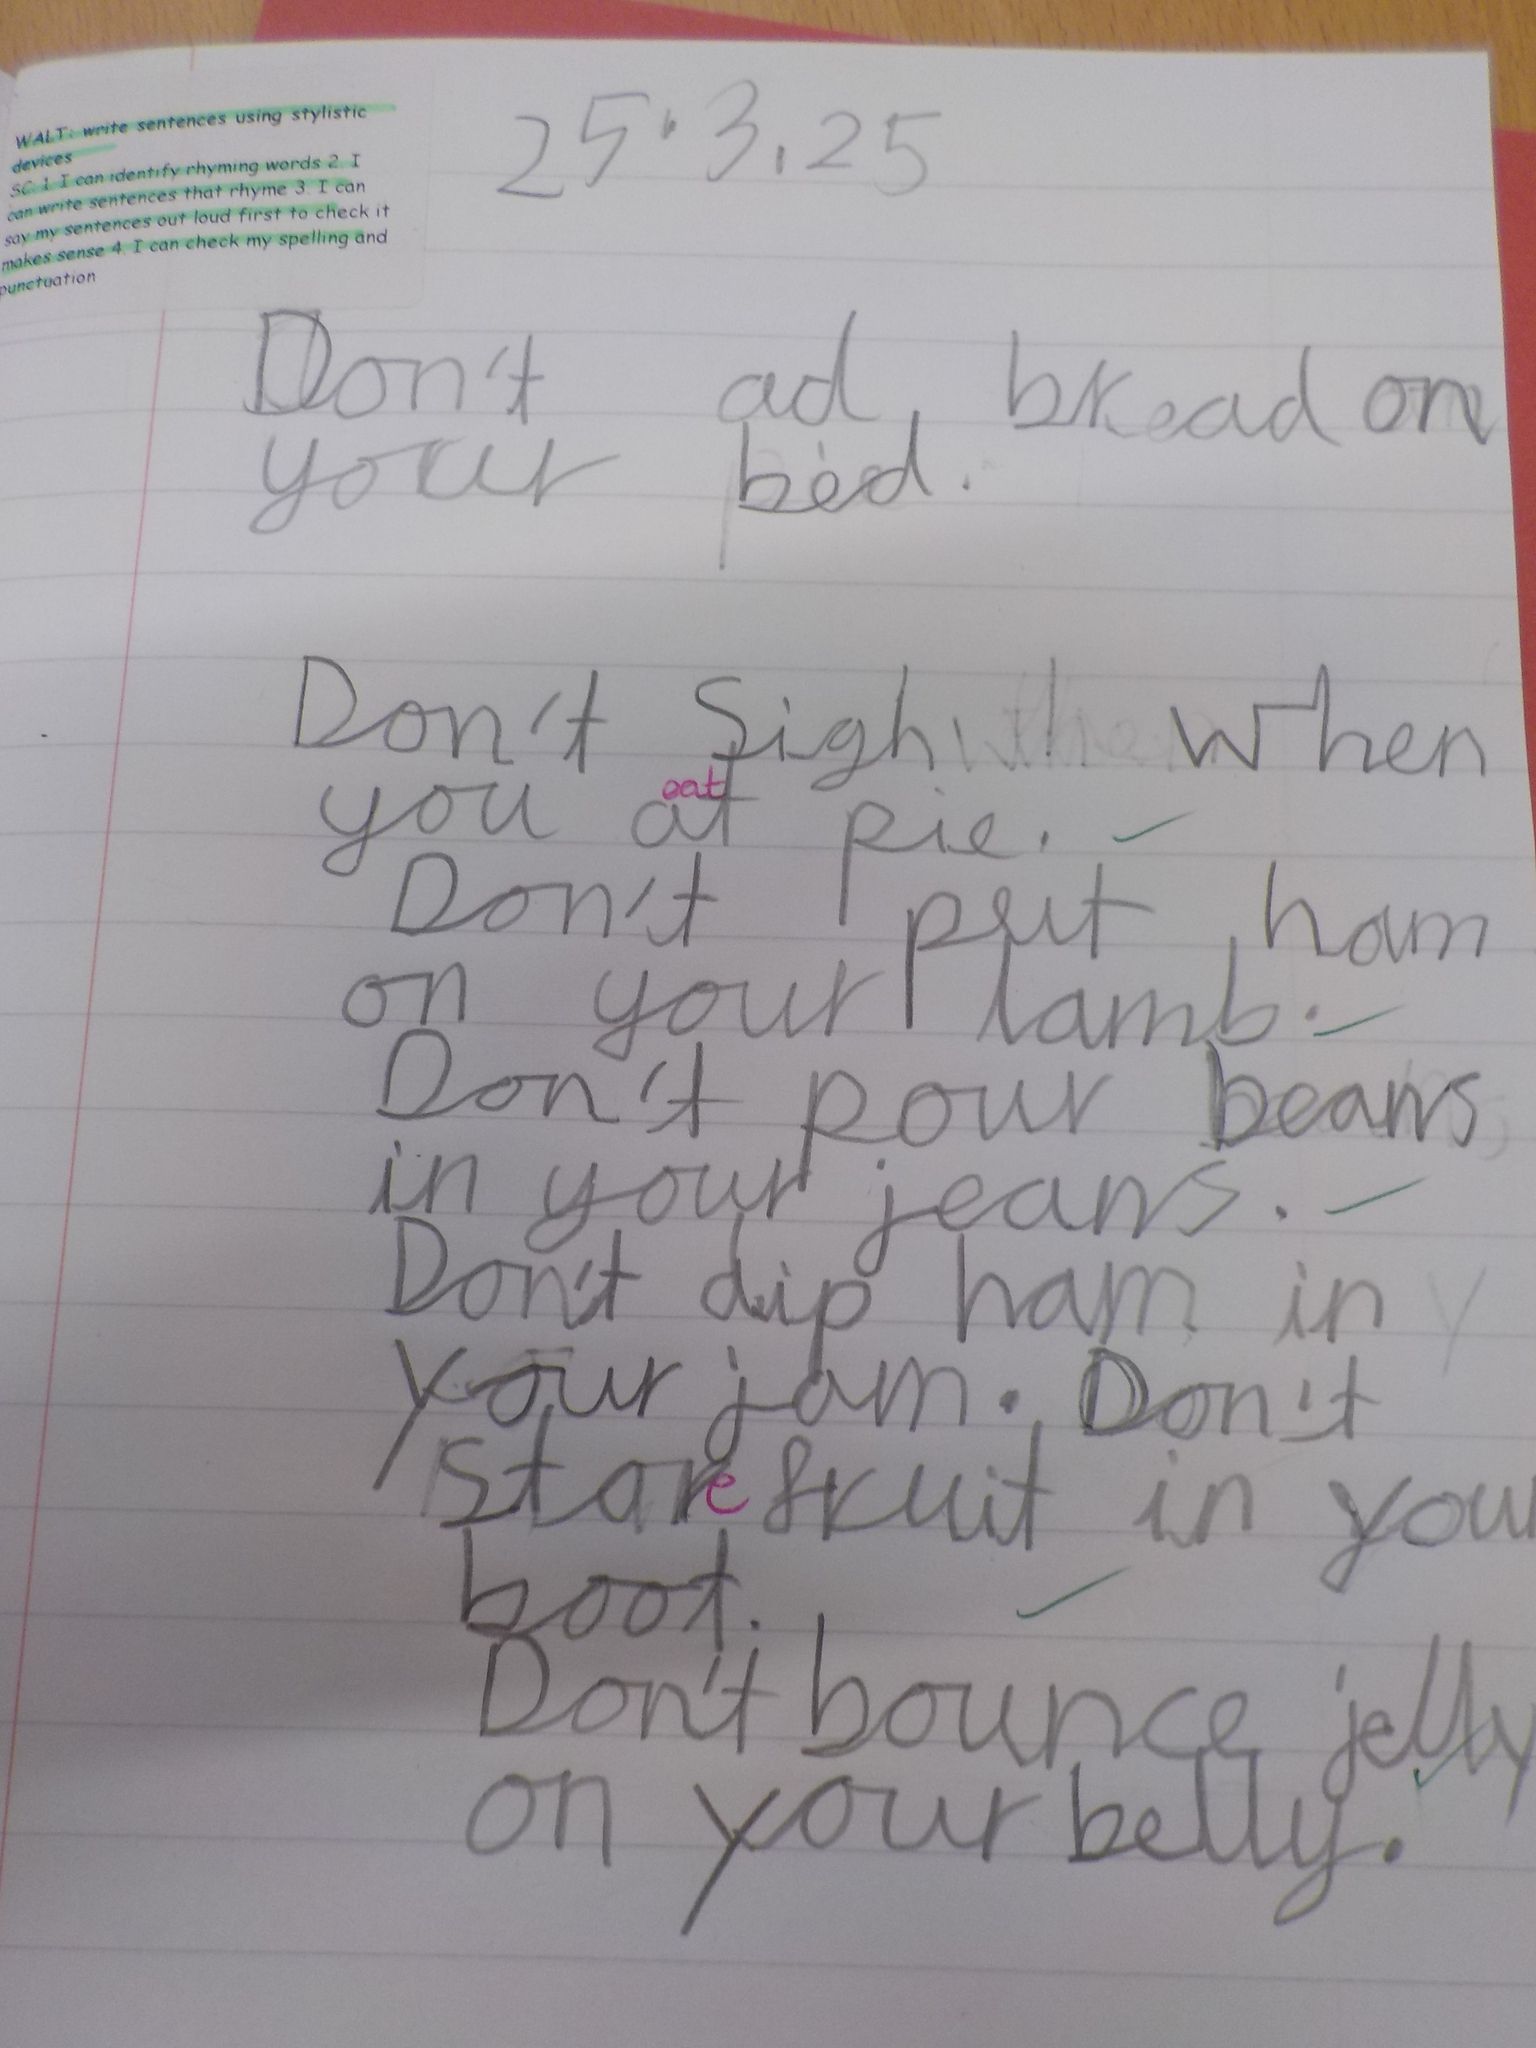 WALT: write sentences using stylistic
devices
SC 1. I can identify rhyming words 2. I
can write sentences that rhyme 3. I can
say my sentences out loud first to check it
makes sense 4. I can check my spelling and
punctuation
25.3.25
Don't ad bread on
your bed.
Don't Sigh when
you at pie.
eat
Don't put ham
on your lamb.
Don't pour beans
in your jeans.
Don't dip ham in
your jam. Don't
Stare fruit in your
boot.
Don't bounce jelly
on your belly.